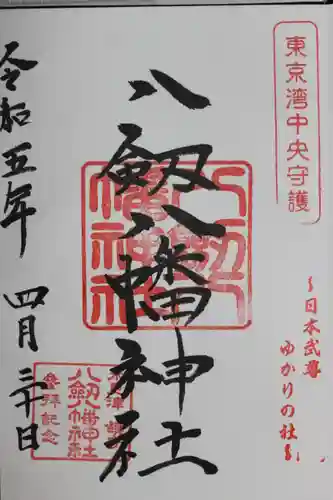 東京湾中央守護
~日本武尊
ゆかりの社~
八剱八幡神社
令和五年
四月三十日
八剱八幡神社
八剱八幡神社
参拝記念